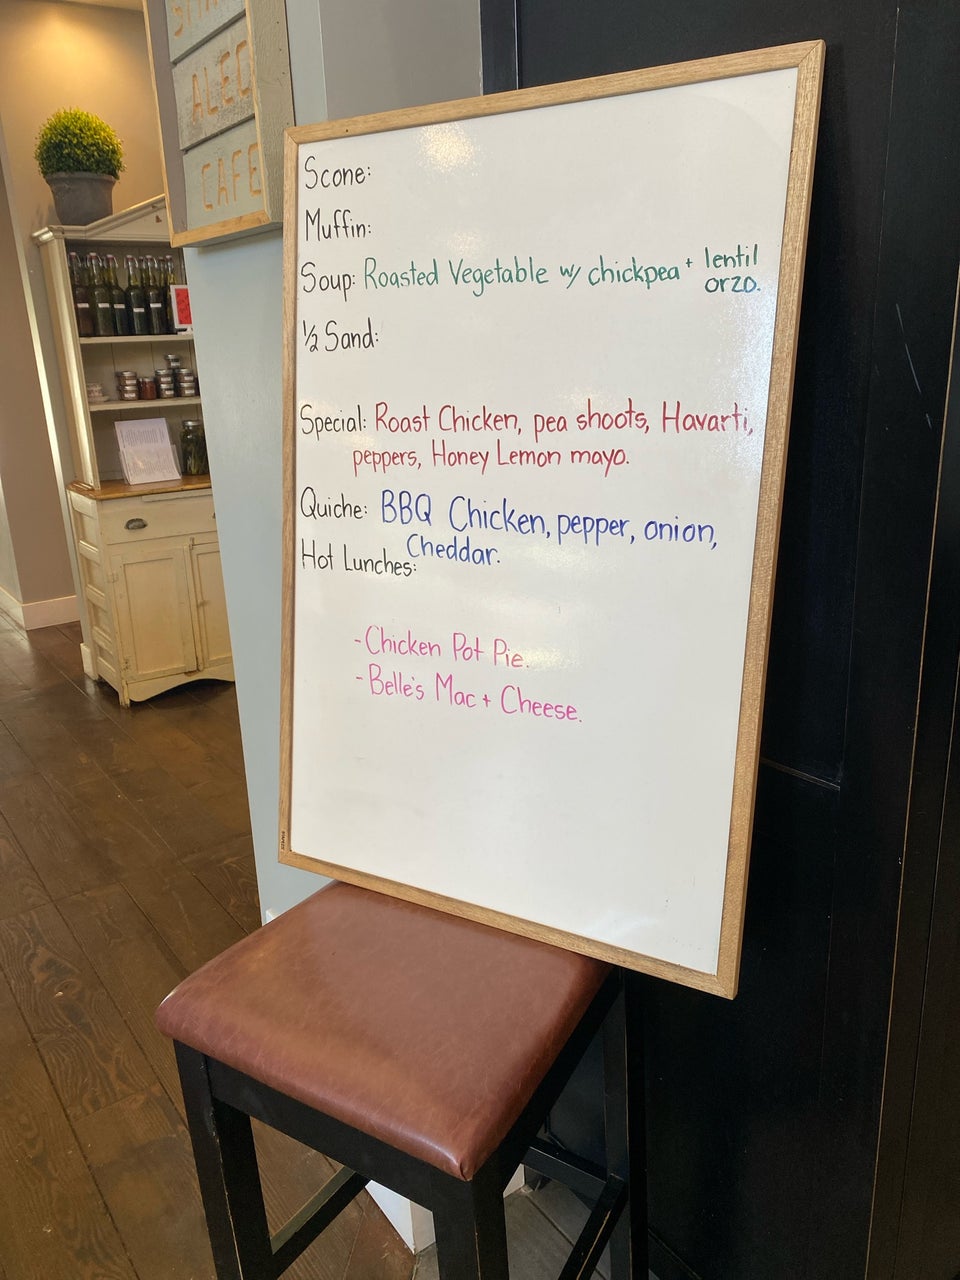 ALEC
CAFE
Scone:
Muffin:
Soup: Roasted Vegetable w/ chickpea + lentil
orzo.
1/2 Sand:
Special: Roast Chicken, pea shoots, Havarti,
peppers, Honey Lemon mayo.
Quiche: BBQ Chicken, pepper, onion,
Cheddar.
Hot Lunches:
- Chicken Pot Pie.
- Belle's Mac + Cheese.